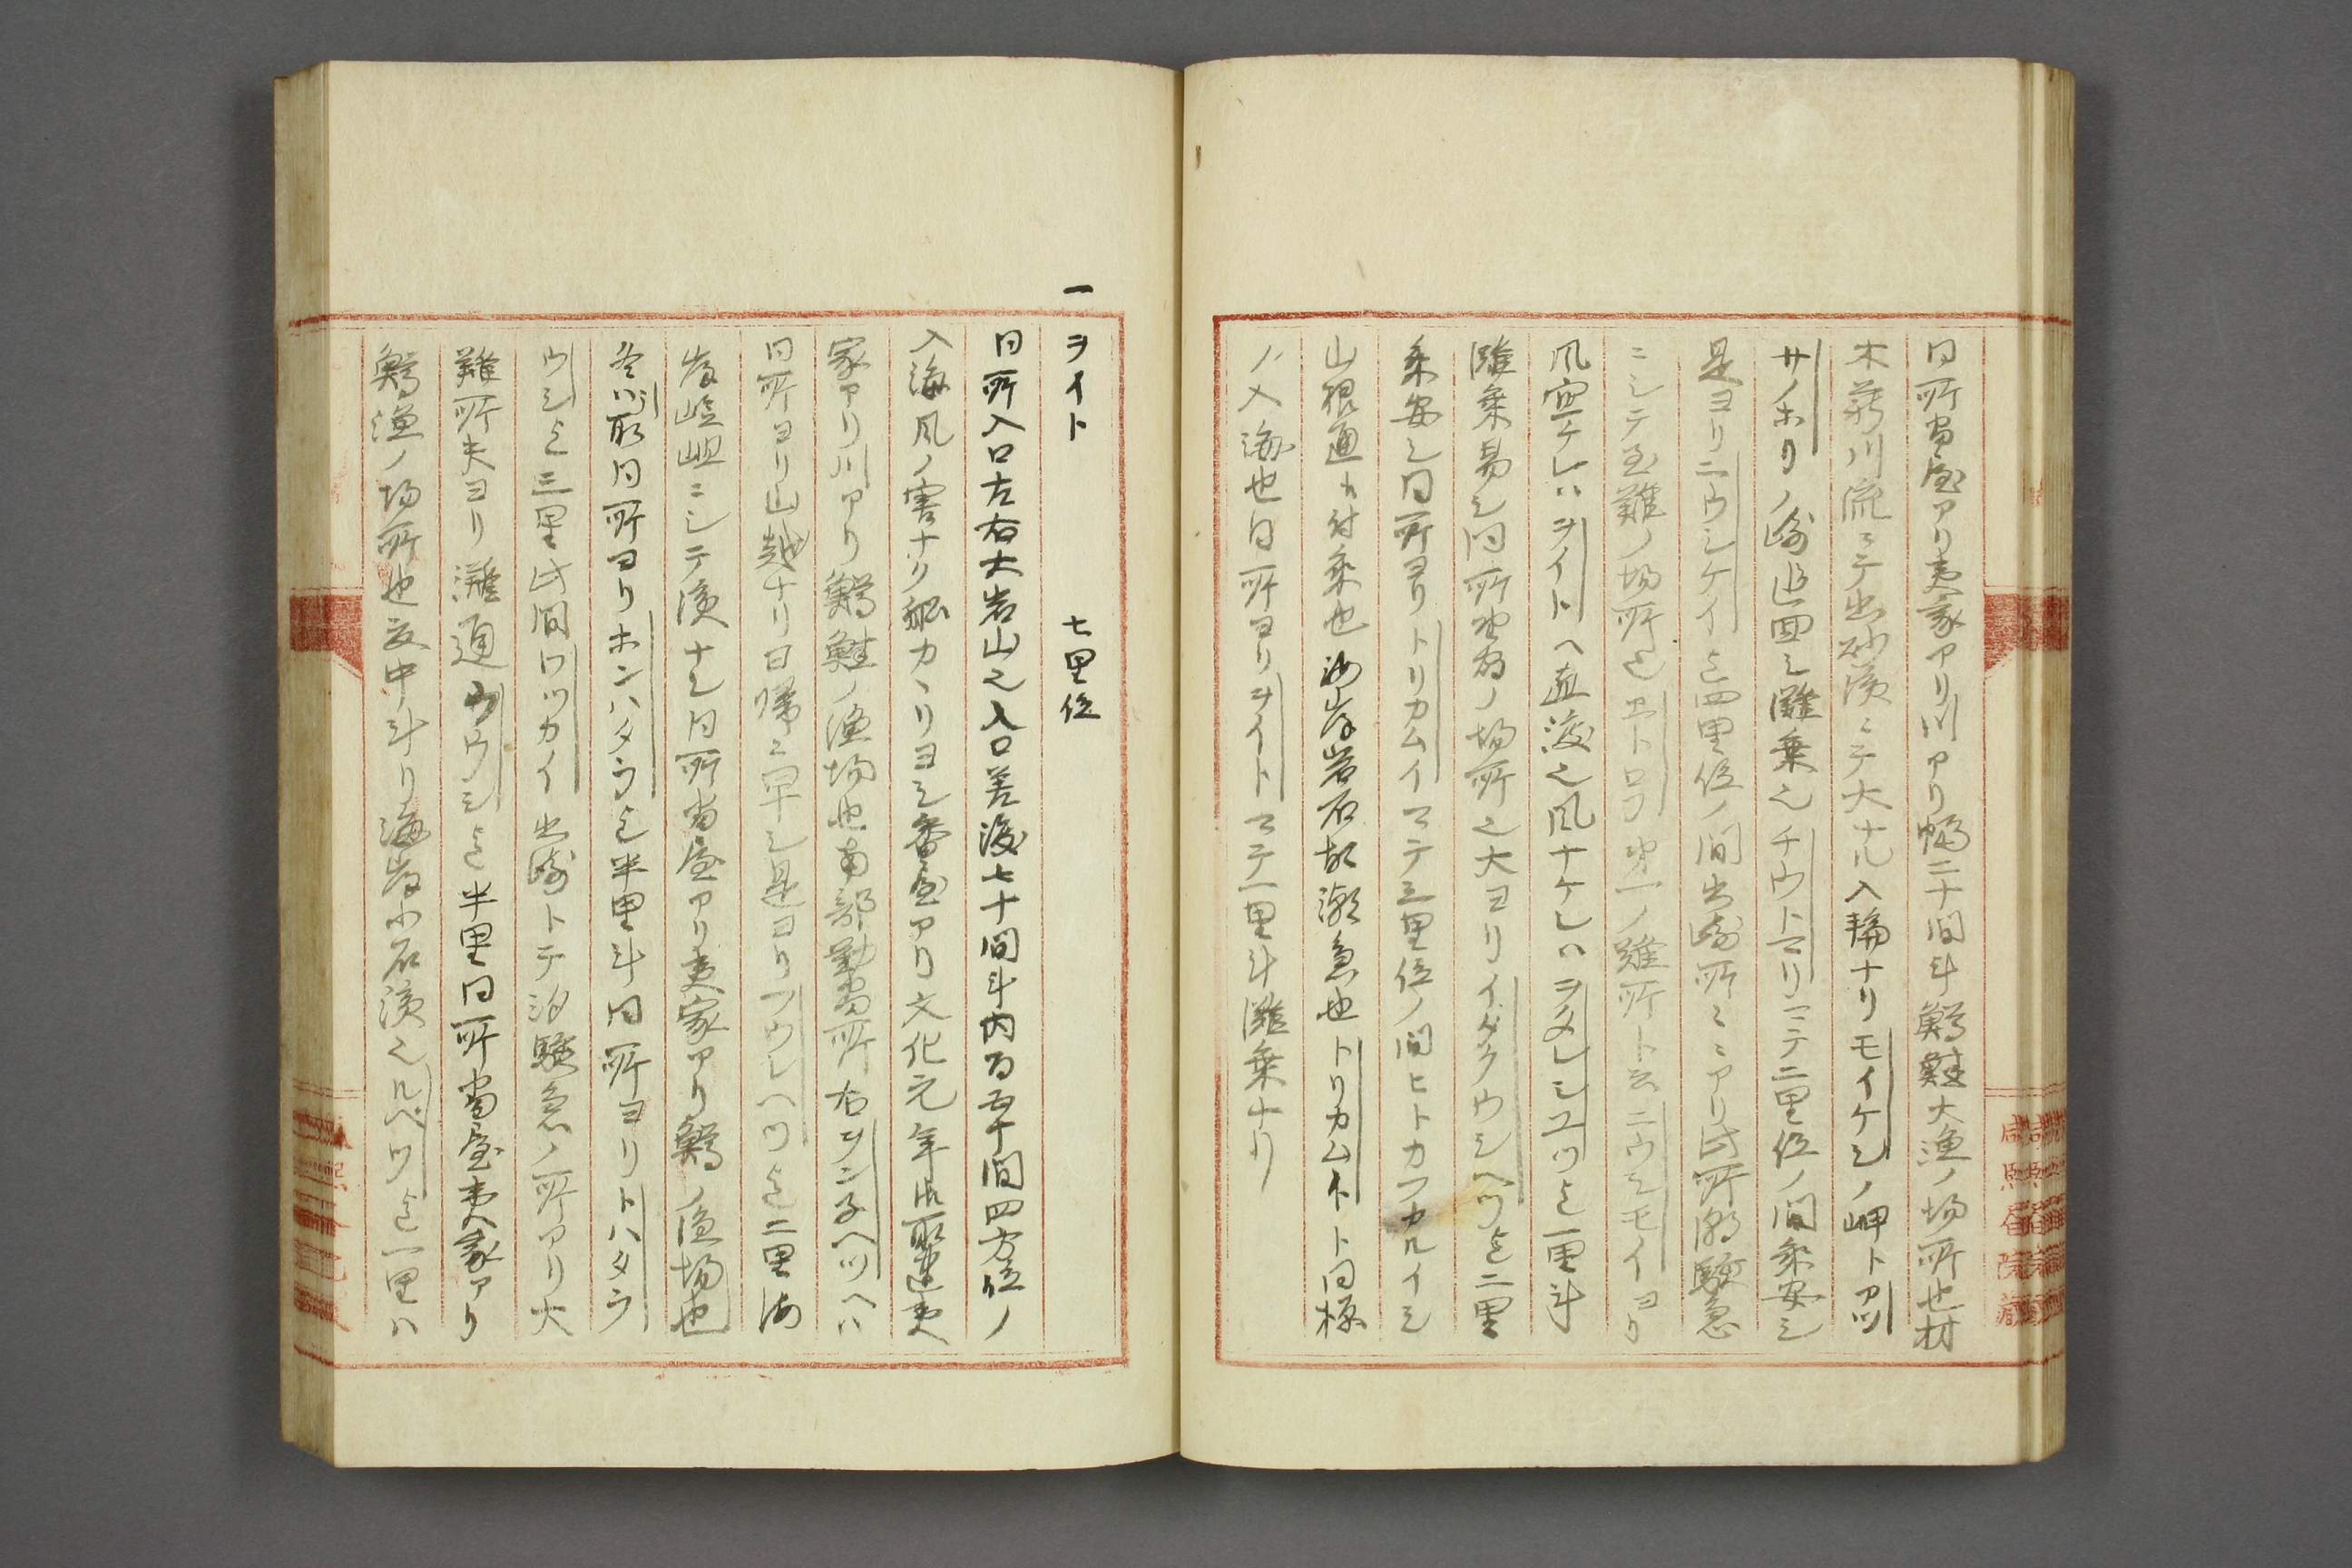 同所番屋アリ夷家アリ川アリ幅二十間斗鱒鮭大漁ノ場所也材
木薪川流ニテ出砂濱ニテ大ナル入輪ナリモイケシノ岬トアツ
サノホリノ崎迫回シ灘乗之チウトマリニテ二里位ノ間乗安シ
是ヨリニウシケイ迄四里位ノ間出崎所ニアリ此所潮騒急
ニシテ至難ノ場所也ヱトロフ第一ノ難所ト云ニウシモイヨリ
風宜ケレハヲイトヘ直渡之風ナケレハヲタレシユツ迄一里斗
灘乗易シ同所
ノ場所之大ヨリイタクウシヘツ迄二里
乗安シ同所ヨリトリカムイマテ三里位ノ間ヒトカフカルイシ
山根通リ付乗也海岸岩石故潮急也トリカムイト同様
ノ入海也同所ヨリヲイトマテ一里斗灘乗ナリ
一ヲイト 七里位
同所入口左右大岩山之入口差渡七十間斗内百五十間四方位ノ
入海風ノ害ナク船カヽリヨシ番屋アリ文化元年出取建夷
家アリ川アリ鱒鮭ノ漁場也南部勤番所右ヲンネヘツヘハ
同所ヨリ山越ナリ日帰ニ早シ是ヨリフウレヘツ迄二里海
岸嶮岨ニシテ濱ナシ同所番屋アリ夷家アリ鱒ノ漁場也
同所ヨリホンハタラ迄半里斗同所ヨリトハタラ
ウシ迄三里此間ワツカイ出崎トテ汐騒急ノ所アリ大
難所夫ヨリ灘通
ウシ迄半里同所番屋夷家アリ
鱒漁ノ場所也夏中斗リ海岸小石濱之ルベツ迄一里ハ